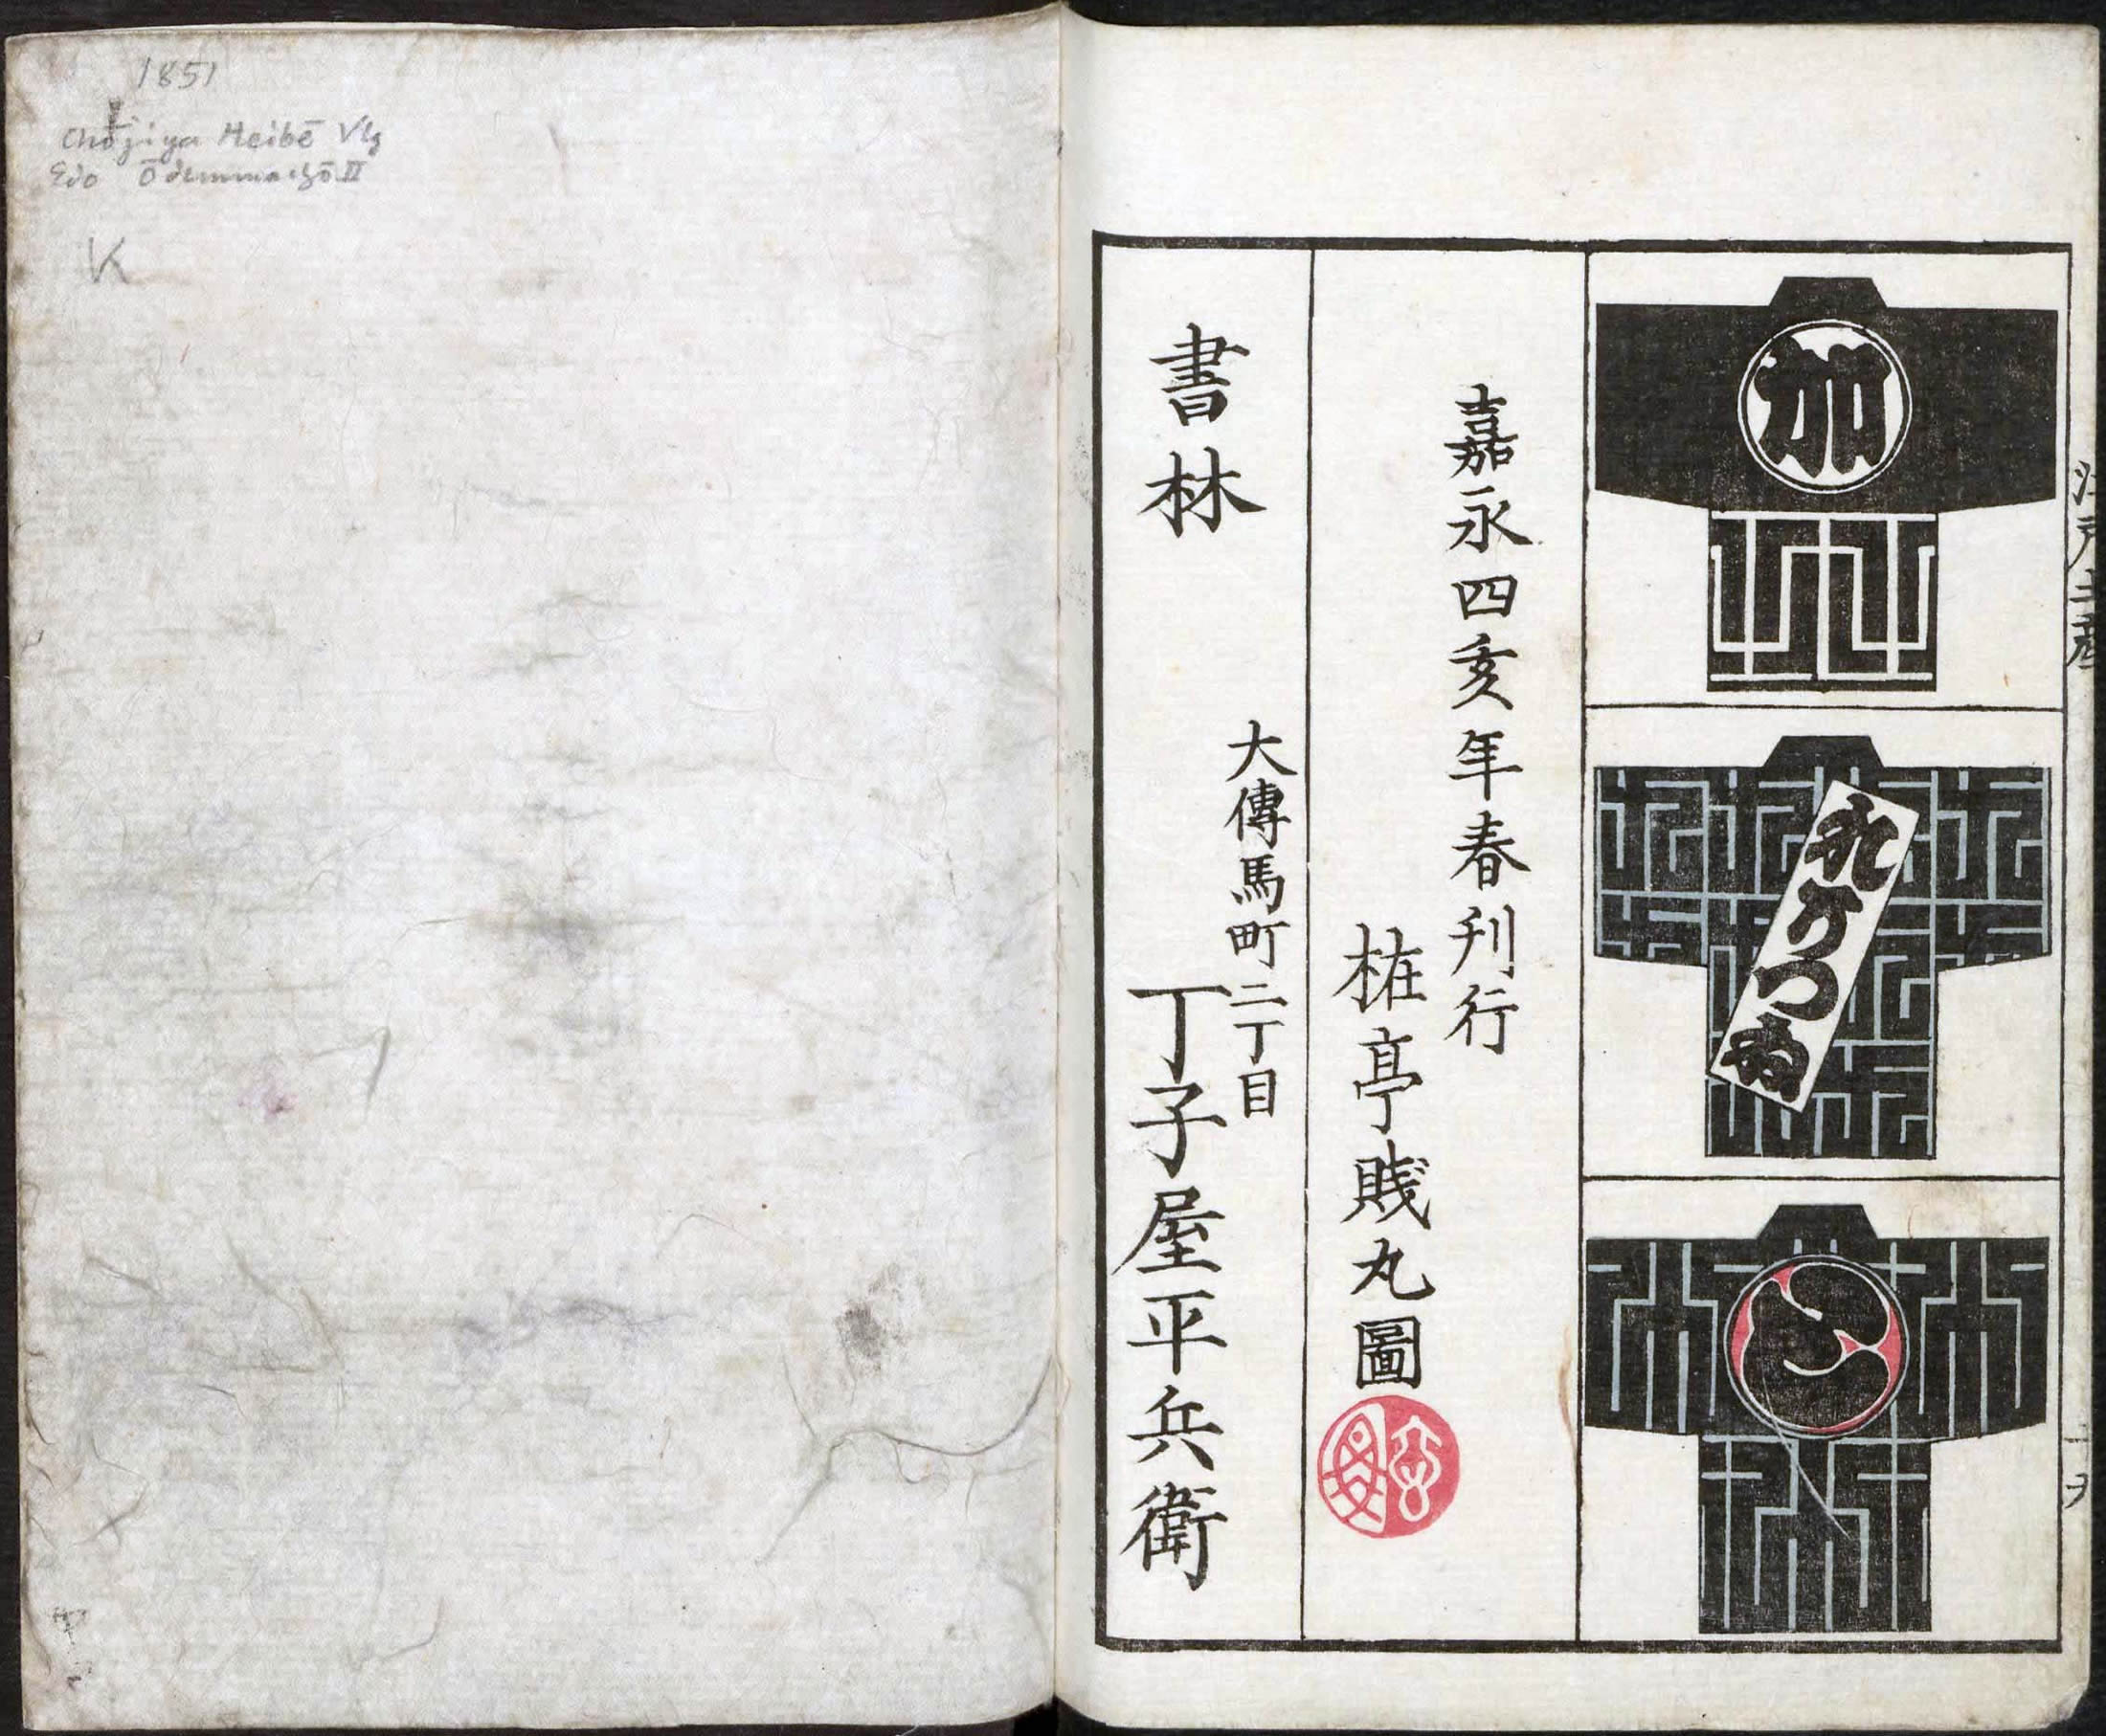 1851
Chōjiya Heibē Vlg
Edo Ōdemmachō II
K
江戸土産
加
嘉永四亥年春刊行
梅亭賎丸圖
大傳馬町二丁目
書林 丁子屋平兵衛